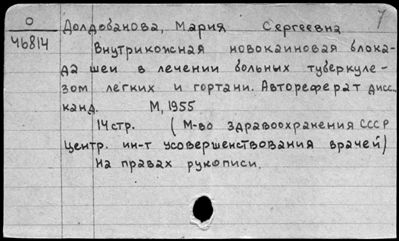 О
46814
Долдобанова, Мария Сергеевна
Внутрикожная новокаиновая блока-
да шеи в лечении больных туберкуле-
зом легких и гортани. Автореферат дисс.
канд. М, 1955
14 стр. (М-во здравоохранения СССР
Центр. ин-т усовершенствования врачей)
На правах рукописи.